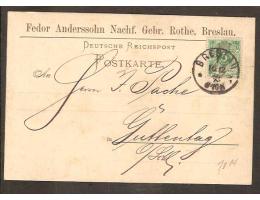 Fedor Anderssohn Nachf. Gebr. Rothe, Breslau.
DEUTSCHE REICHSPOST
POSTKARTE.
An Herrn J. Pache
in Guttentag